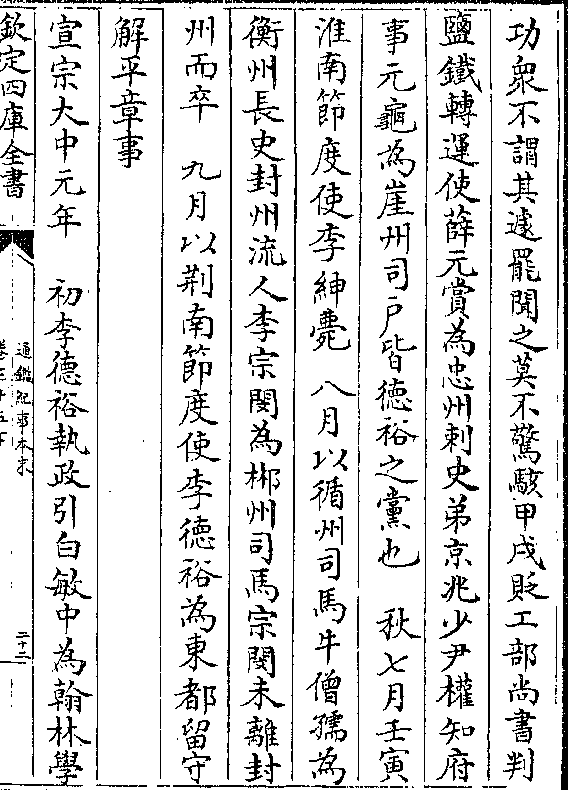 功衆不謂其遽罷聞之莫不驚駭甲戌貶工部尚書判
鹽鐵轉運使薛元賞為忠州刺史弟京兆少尹權知府
事元龜為崖州司戶皆德裕之黨也 秋七月壬寅
淮南節度使李紳薨 八月以循州司馬牛僧孺為
衡州長史封州流人李宗閔為郴州司馬宗閔未離封
州而卒 九月以荆南節度使李德裕為東都留守
解平章事
宣宗大中元年 初李德裕執政引白敏中為翰林學
欽定四庫全書
通鑑紀事本末
卷三十五下
二十二